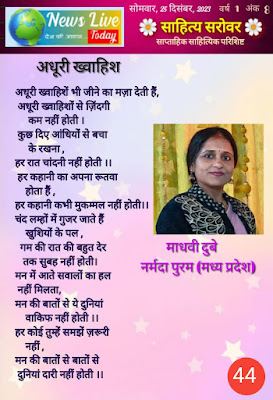 News Live
Today
देश की आवाज
सोमवार, 25 दिसंबर, 2021 वर्ष 1 अंक 8
साहित्य सरोवर
साप्ताहिक साहित्यिक परिशिष्ट
अधूरी ख्वाहिश
अधूरी ख्वाहिशें भी जीने का मज़ा देती हैं,
अधूरी ख्वाहिशों से ज़िंदगी
कम नहीं होती ।
कुछ दिए आंधियों से बचा
के रखना ,
हर रात चांदनी नहीं होती ।।
हर कहानी का अपना रूतवा
होता हैं ,
हर कहानी कभी मुकम्मल नहीं होती।।
चंद लम्हों में गुजर जाते हैं
खुशियों के पल ,
गम की रात की बहुत देर
तक सुबह नहीं होती।
मन में आते सवालों का हल
नहीं मिलता,
मन की बातों से ये दुनियां
वाकिफ नहीं होती ।।
हर कोई तुम्हें समझें ज़रूरी
नहीं ,
मन की बातों से बातों से
दुनियां दारी नहीं होती ।।
माधवी दुबे
नर्मदा पुरम (मध्य प्रदेश)
44